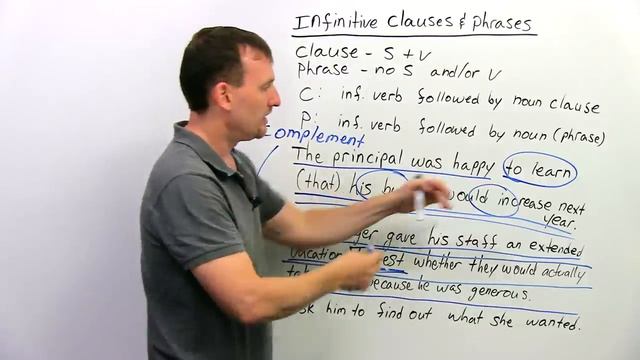 Infinitive Clauses & Phrases
Clause - S + V
Phrase - no S and/or V
C: inf. verb followed by noun clause
P: inf. verb followed by noun (phrase)
Complement
The principal was happy to learn
(that) his would increase next
year.
gave his staff an extended
vacation whether they would actually
because he was generous.
him to find out what she wanted.